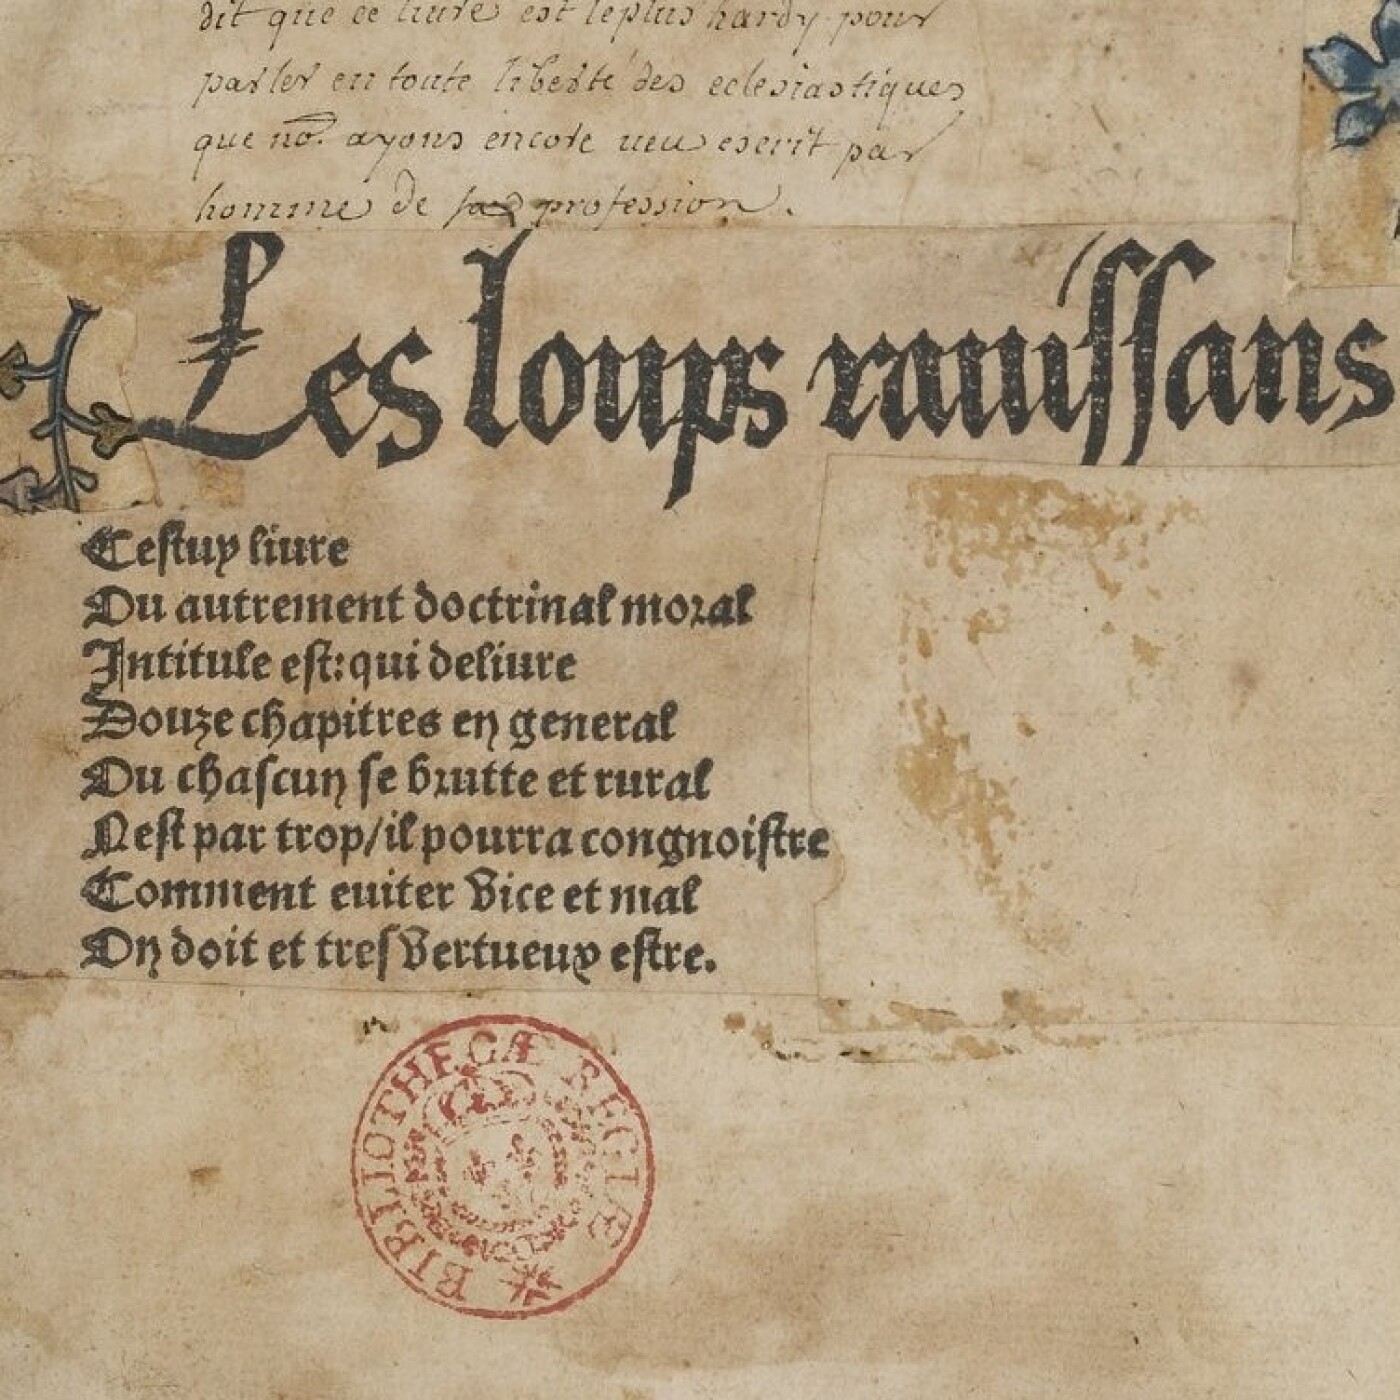 dit que ce liure est le plus hardy pour
parler en toute liberté des eclesiastiques
que no9. ayons encore ueu escrit par
homme de sa profession.
Les loups rauissans
Cestuy liure
Ou autrement doctrinal moral
Intitule est: qui deliure
Douze chapitres en general
Ou chascun se brutte et rural
Nest par trop/il pourra congnoistre
Comment euiter vice et mal
On doit et tres vertueux estre.
BIBLIOTHECÆ REGIÆ